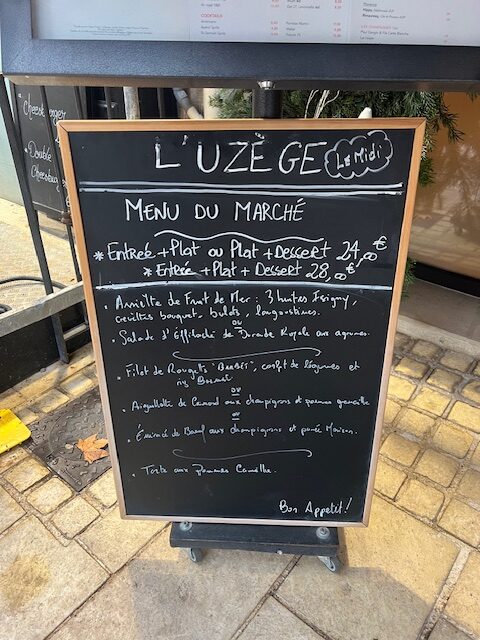 COCKTAILS
Cheeseburger
Double
Cheeseburger
L'UZÈGE Le Midi
MENU DU MARCHÉ
* Entreé + Plat ou Plat + Dessert 24,00€
* Entreé + Plat + Dessert 28,00€
• Assiette de Fruit de Mer : 3 huîtres Isigny,
crevettes bouquet, bulots, langoustines.
ou
• Salade d'Effiloché de Dorade Royale aux agrumes.
• Filet de Rougets "Barbet", confit de légumes et
riz Basmati
ou
• Aiguillette de Canard aux champignons et pommes grenaille
ou
• Émincé de Bœuf aux champignons et purée Maison.
• Tarte aux Pommes Cannelle.
Bon Appetit!